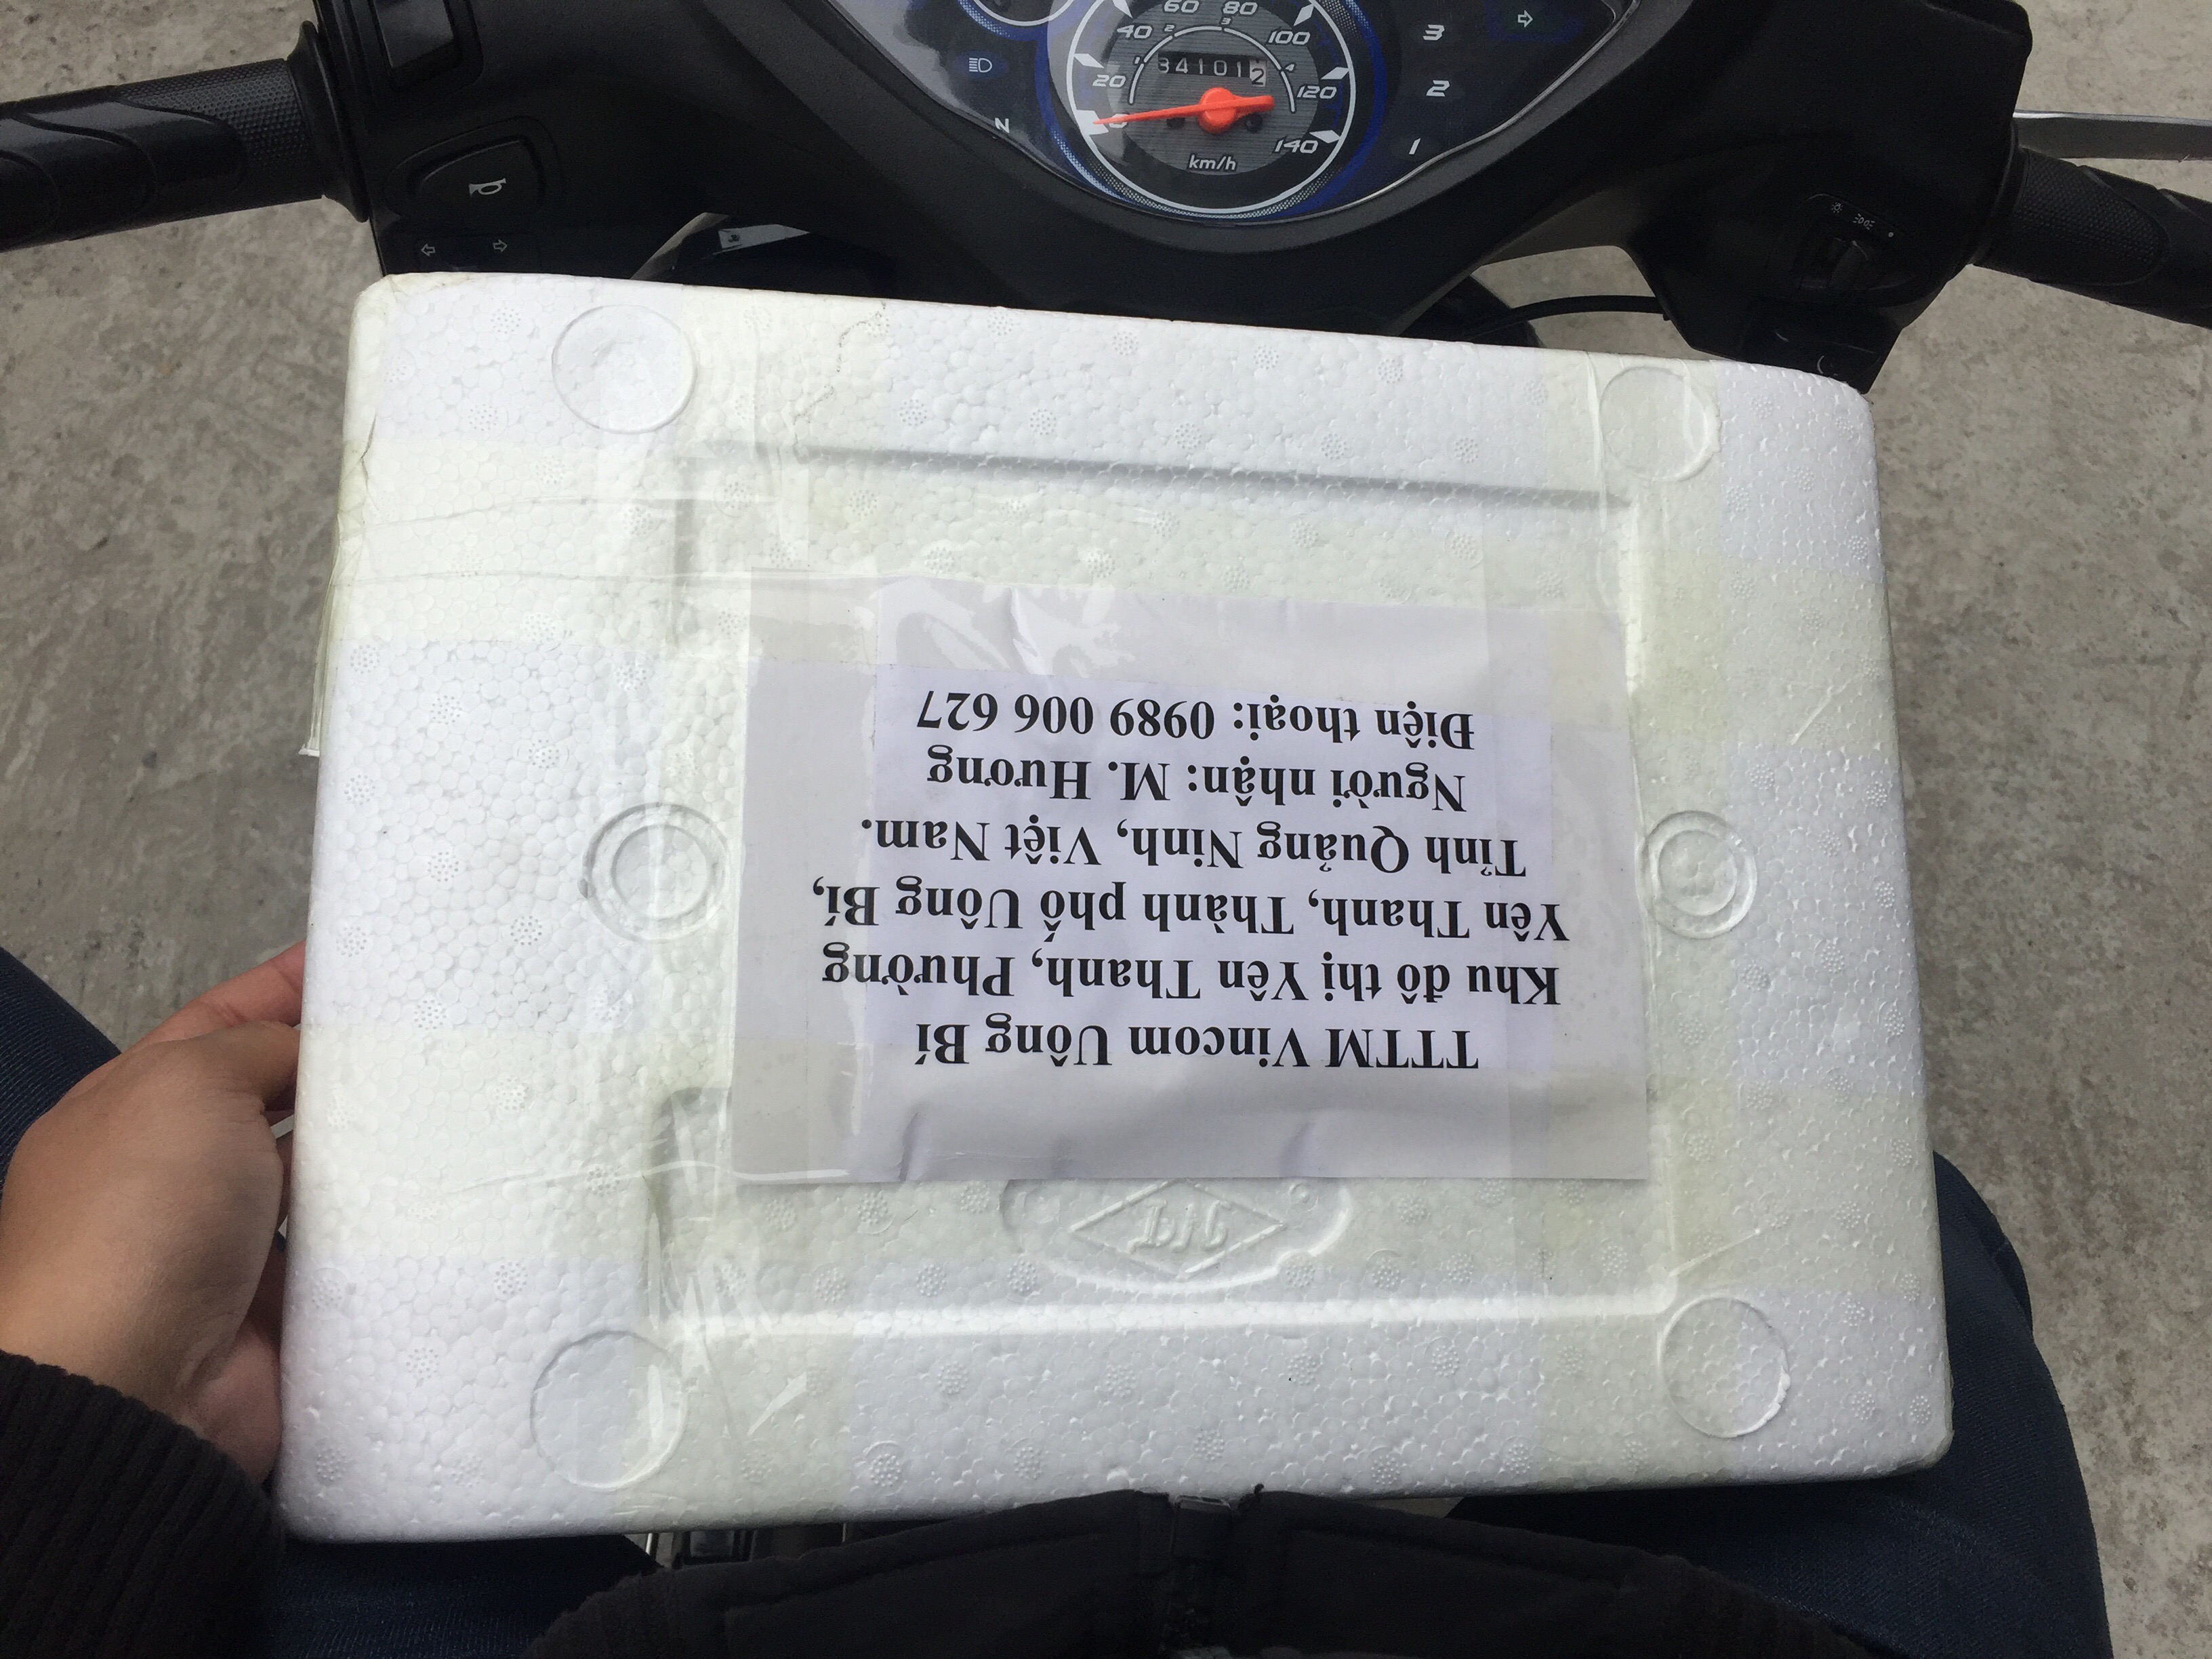 60 80
40 100
20 120
140
2 3
1 4
34101 2
km/h
N
3
2
1
TTTM Vincom Uông Bí
Khu đô thị Yên Thanh, Phường
Yên Thanh, Thành phố Uông Bí,
Tỉnh Quảng Ninh, Việt Nam.
Người nhận: M. Hương
Điện thoại: 0989 006 627